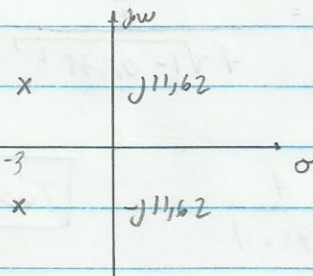 jω
x j11,62
-3 σ
x -j11,62